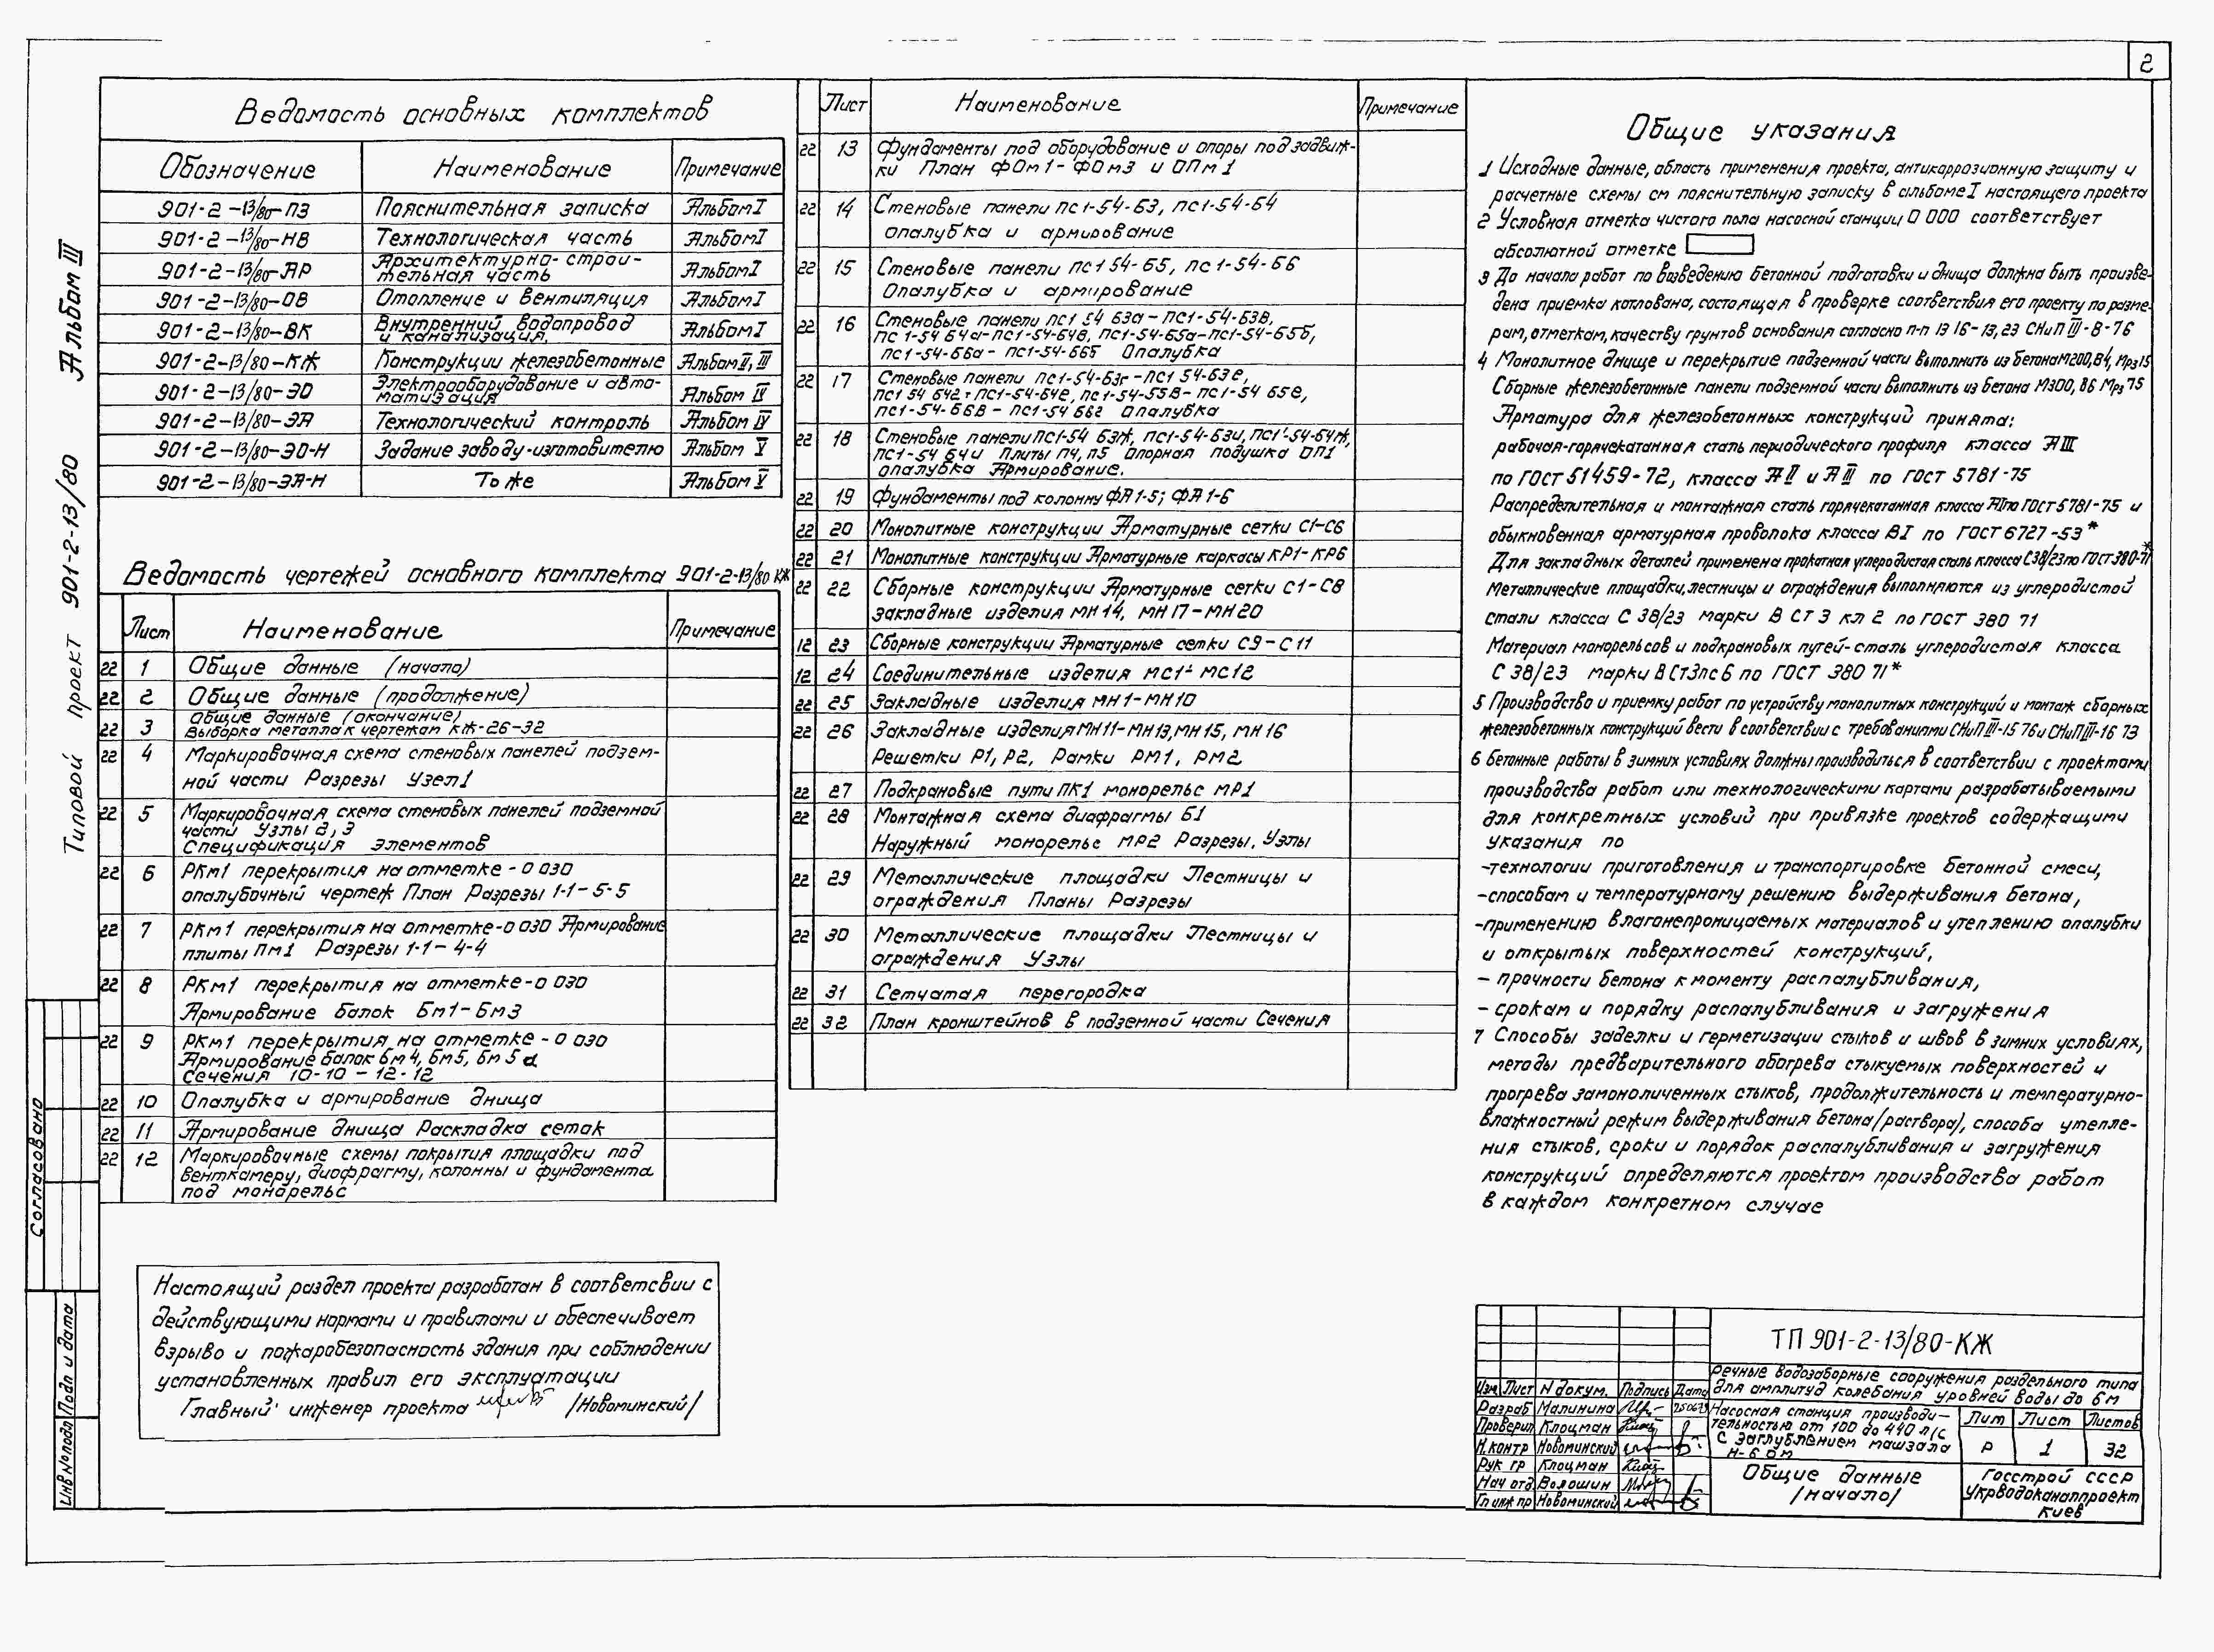 2
Альбом III
Типовой проект 901-2-13/80
Согласовано
Подп и дата
Инв № подл
Ведомость основных комплектов
Обозначение Наименование Примечание
901-2-13/80-ПЗ Пояснительная записка Альбом I
901-2-13/80-НВ Технологическая часть Альбом I
901-2-13/80-АР Архитектурно-строи-
тельная часть Альбом I
901-2-13/80-ОВ Отопление и вентиляция Альбом I
901-2-13/80-ВК Внутренний водопровод
и канализация. Альбом I
901-2-13/80-КЖ Конструкции железобетонные Альбом II, III
901-2-13/80-ЭО Электрооборудование и авто-
матизация Альбом IV
901-2-13/80-ЭА Технологический контроль Альбом IV
901-2-13/80-ЭО-Н Задание заводу-изготовителю Альбом V
901-2-13/80-ЭА-Н То же Альбом V
Ведомость чертежей основного комплекта 901-2-13/80 КЖ
Лист Наименование Примечание
22 1 Общие данные (начало)
22 2 Общие данные (продолжение)
22 3 Общие данные (окончание)
Выборка металла к чертежам КЖ-26-32
22 4 Маркировочная схема стеновых панелей подзем-
ной части Разрезы Узел 1
22 5 Маркировочная схема стеновых панелей подземной
части Узлы 2, 3
Спецификация элементов
22 6 РКм1 перекрытия на отметке -0 030
опалубочный чертеж План Разрезы 1-1 - 5-5
22 7 РКм1 перекрытия на отметке -0 030 Армирование
плиты Пм1 Разрезы 1-1 - 4-4
22 8 РКм1 перекрытия на отметке -0 030
Армирование балок Бм1-Бм3
22 9 РКм1 перекрытия на отметке -0 030
Армирование балок Бм4, Бм5, Бм5а
Сечения 10-10 - 12-12
22 10 Опалубка и армирование днища
22 11 Армирование днища Раскладка сеток
22 12 Маркировочные схемы покрытия площадки под
венткамеру, диафрагму, колонны и фундамента
под монорельс
Настоящий раздел проекта разработан в соответсвии с
действующими нормами и правилами и обеспечивает
взрыво и пожаробезопасность здания при соблюдении
установленных правил его эксплуатации
Главный инженер проекта /Новоминский/
Лист Наименование Примечание
22 13 Фундаменты под оборудование и опоры под задвиж-
ки План ФОм1-ФОм3 и ОПм1
22 14 Стеновые панели ПС1-54-Б3, ПС1-54-Б4
опалубка и армирование
22 15 Стеновые панели ПС1 54-Б5, ПС1-54-Б6
Опалубка и армирование
22 16 Стеновые панели ПС1 54 Б3а - ПС1-54-Б3в,
ПС 1-54 Б4а-ПС1-54-Б4в, ПС1-54-Б5а-ПС1-54-Б5б,
ПС1-54-Б6а - ПС1-54-Б6б Опалубка
22 17 Стеновые панели ПС1-54-Б3г-ПС1 54-Б3е,
ПС1 54 Б4г-ПС1-54-Б4е, ПС1-54-Б5в-ПС1-54 Б5е,
ПС1-54-Б6в - ПС1-54 Б6г Опалубка
22 18 Стеновые панели ПС1-54 Б3ж, ПС1-54-Б3и, ПС1-54-Б4ж,
ПС1-54 Б4и Плиты П4, П5 Опорная подушка ОП1
опалубка Армирование.
22 19 Фундаменты под колонну ФА1-5; ФА1-6
22 20 Монолитные конструкции Арматурные сетки С1-С6
22 21 Монолитные конструкции Арматурные каркасы КР1-КР6
22 22 Сборные конструкции Арматурные сетки С1-С8
закладные изделия МН14, МН17-МН20
12 23 Сборные конструкции Арматурные сетки С9-С11
12 24 Соединительные изделия МС1-МС12
22 25 Закладные изделия МН1-МН10
22 26 Закладные изделия МН11-МН13, МН15, МН16
Решетки Р1, Р2, Рамки РМ1, РМ2
22 27 Подкрановые пути ПК1 монорельс МР1
22 28 Монтажная схема диафрагмы Б1
Наружный монорельс МР2 Разрезы, Узлы
22 29 Металлические площадки Лестницы и
ограждения Планы Разрезы
22 30 Металлические площадки Лестницы и
ограждения Узлы
22 31 Сетчатая перегородка
22 32 План кронштейнов в подземной части Сечения
Общие указания
1 Исходные данные, область применения проекта, антикоррозионную защиту и
расчетные схемы см пояснительную записку в альбоме I настоящего проекта
2 Условная отметка чистого пола насосной станции 0 000 соответствует
абсолютной отметке
3 До начала работ по возведению бетонной подготовки и днища должна быть произве-
дена приемка котлована, состоящая в проверке соответствия его проекту по разме-
рам, отметкам, качеству грунтов основания согласно п-п 13 16-13,23 СНиП III-8-76
4 Монолитное днище и перекрытие подземной части выполнить из бетона М200, В4, Мрз 15
Сборные железобетонные панели подземной части выполнить из бетона М300, В6 Мрз 75
Арматура для железобетонных конструкций принята:
рабочая-горячекатанная сталь периодического профиля класса АIII
по ГОСТ 51459-72, класса АII и АIII по ГОСТ 5781-75
Распределительная и монтажная сталь горячекатанная класса АI по ГОСТ 5781-75 и
обыкновенная арматурная проволока класса ВI по ГОСТ 6727-53*
Для закладных деталей применена прокатная углеродистая сталь класса С38/23 по ГОСТ 380-71*
Металлические площадки, лестницы и ограждения выполняются из углеродистой
стали класса С 38/23 марки В СТ 3 кл 2 по ГОСТ 380 71
Материал монорельсов и подкрановых путей-сталь углеродистая класса
С 38/23 марки В СТ3пс 6 по ГОСТ 380 71*
5 Производство и приемку работ по устройству монолитных конструкций и монтаж сборных
железобетонных конструкций вести в соответствии с требованиями СНиП III-15 76 и СНиП III-16 73
6 Бетонные работы в зимних условиях должны производиться в соответствии с проектами
производства работ или технологическими картами разрабатываемыми
для конкретных условий при привязке проектов содержащими
указания по
-технологии приготовления и транспортировке бетонной смеси,
-способам и температурному решению выдерживания бетона,
-применению влагонепроницаемых материалов и утеплению опалубки
и открытых поверхностей конструкций,
- прочности бетона к моменту распалубливания,
- срокам и порядку распалубливания и загружения
7 Способы заделки и герметизации стыков и швов в зимних условиях,
методы предварительного обогрева стыкуемых поверхностей и
прогрева замоноличенных стыков, продолжительность и температурно-
влажностный режим выдерживания бетона/раствора), способа утепле-
ния стыков, сроки и порядок распалубливания и загружения
конструкций определяются проектом производства работ
в каждом конкретном случае
ТП 901-2-13/80-КЖ
Речные водозаборные сооружения раздельного типа
для амплитуд колебания уровней воды до 6 м
Изм Лист N докум. Подпись Дата
Разраб Малинина
Проверил Клоцман
Н.контр Новоминский
Рук гр Клоцман
Нач отд Волошин
Гл инж пр Новоминский
Насосная станция производи-
тельностью от 100 до 440 л/с
с заглублением машзала
Н-6 0м
Лит Лист Листов
Р 1 32
Общие данные
/начало/
Госстрой СССР
Укрводоканалпроект
Киев